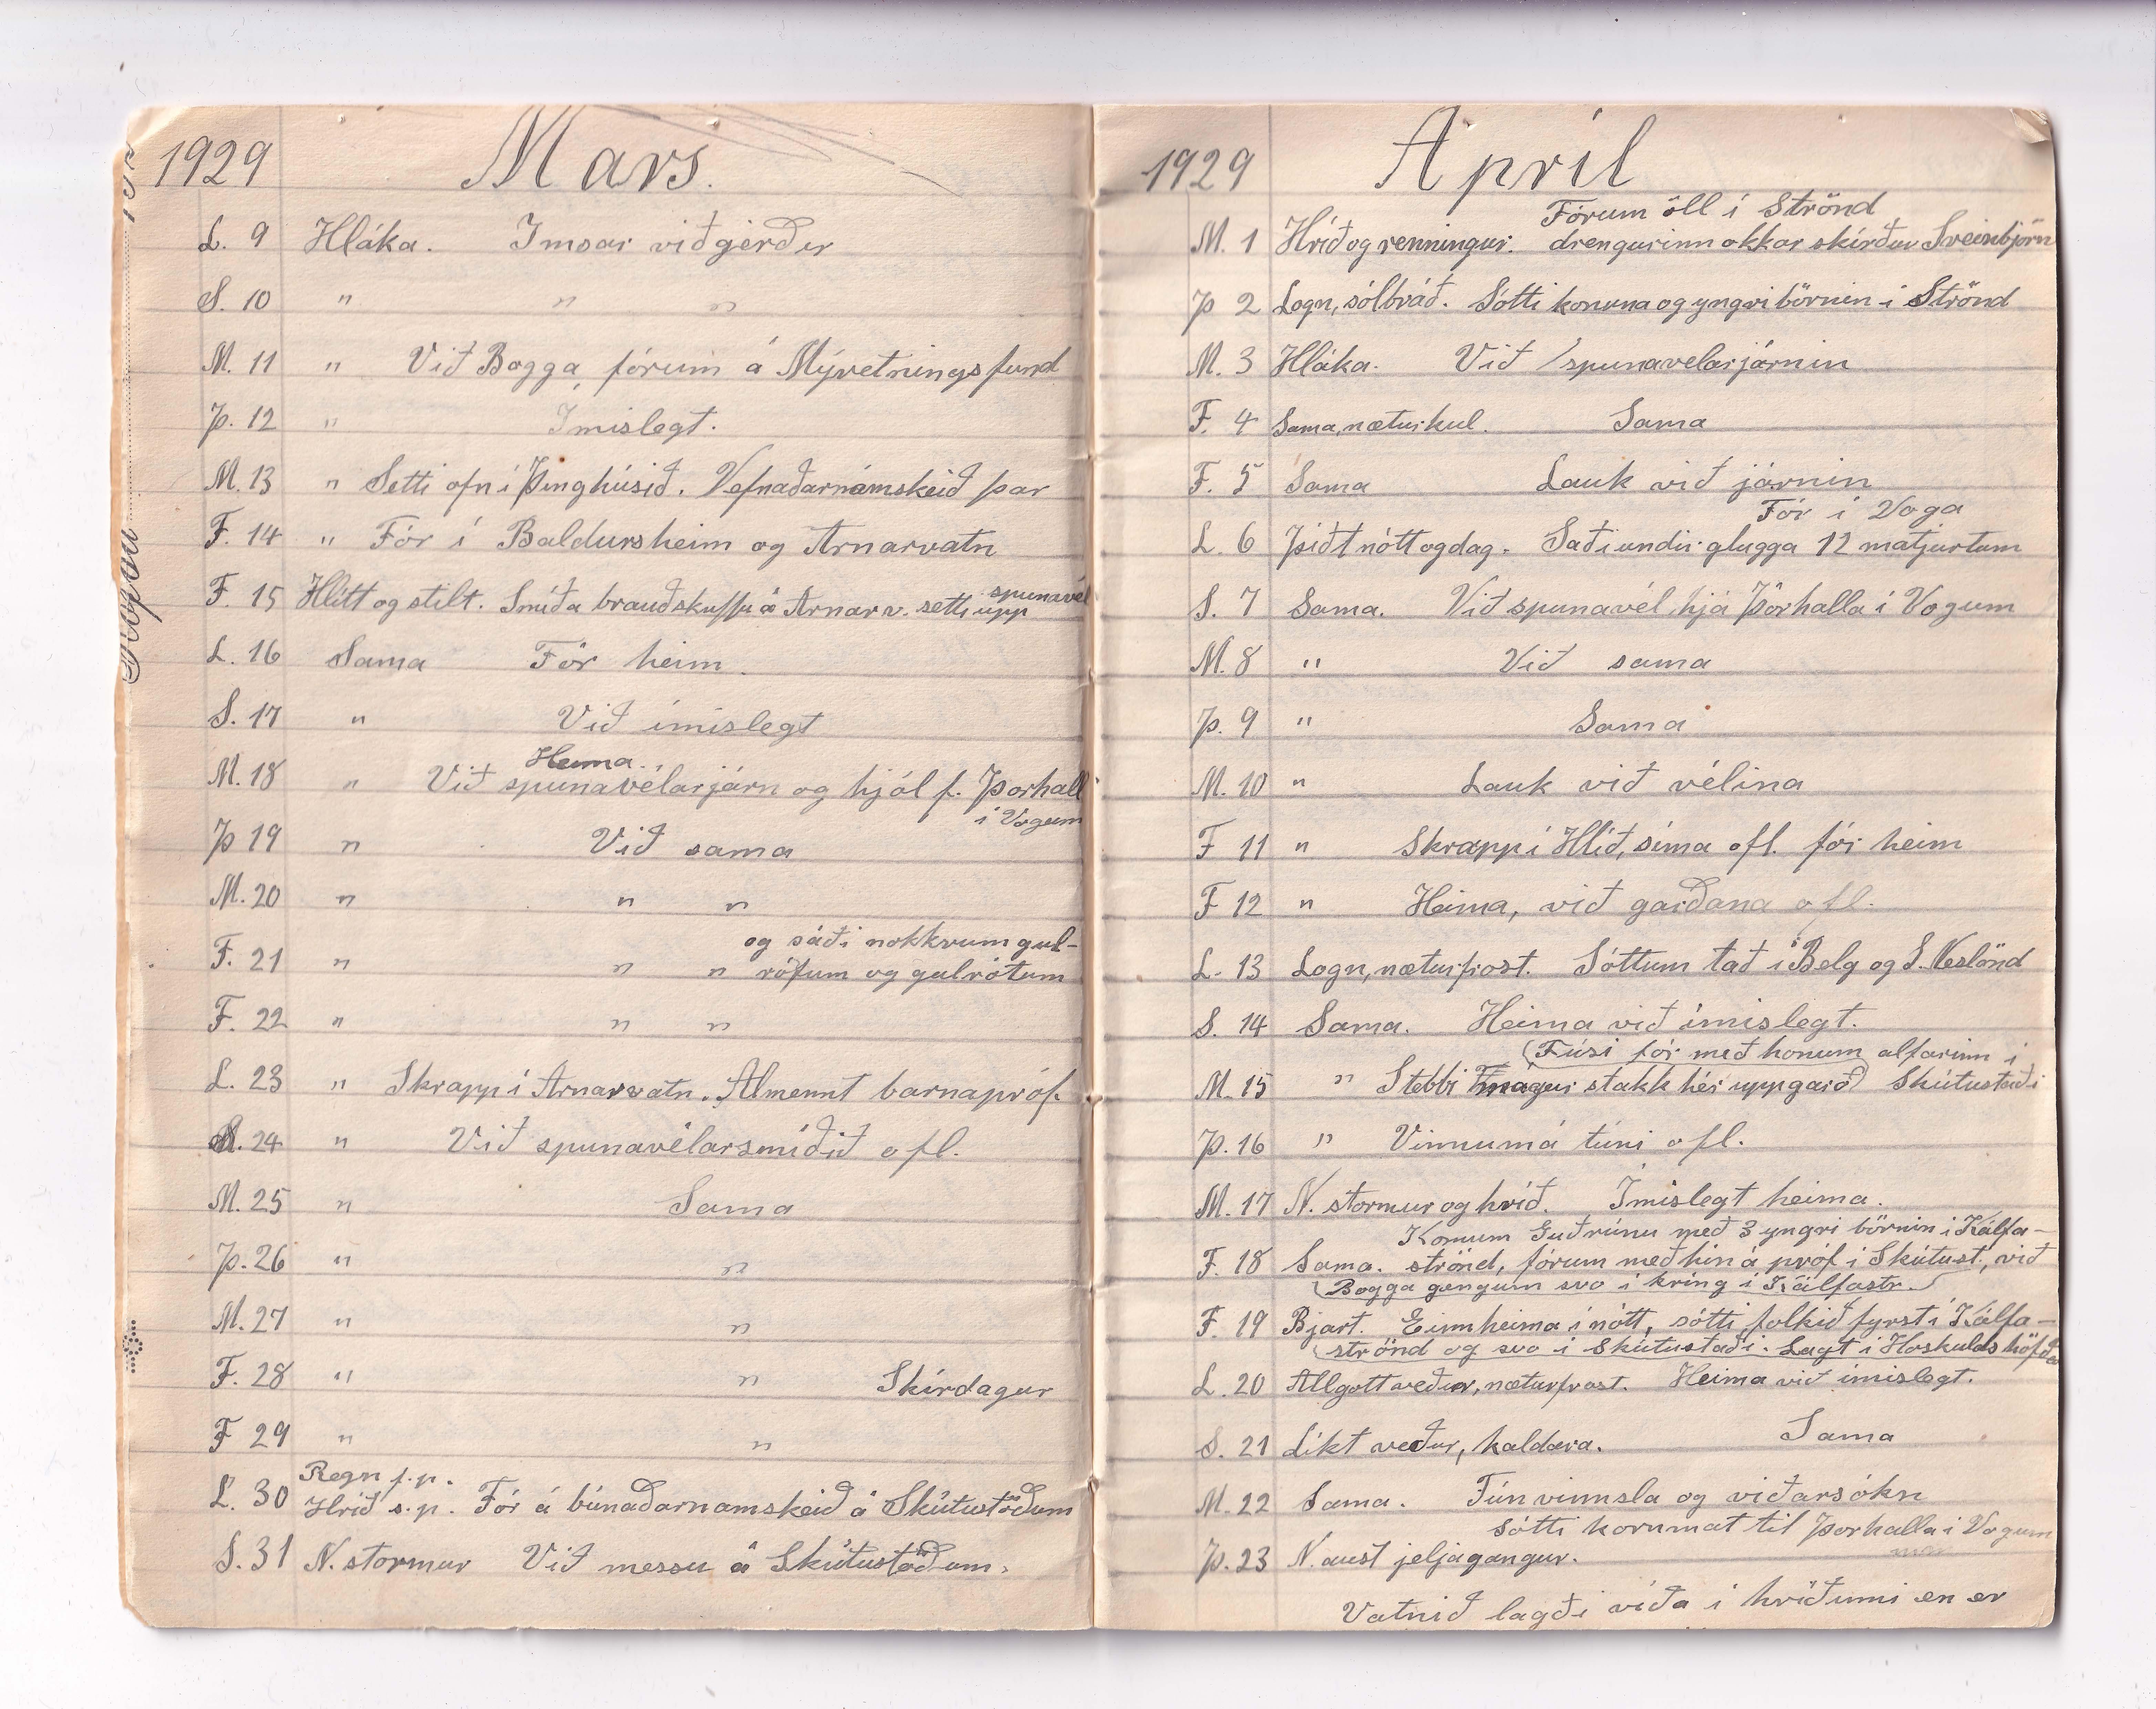 1929 Mars.
L. 9 Hláka. Imsar viðgerðir
S. 10 " " "
M. 11 " Við Bogga, fórum á Mývetningsfund
Þ. 12 " Imislegt.
M. 13 " Setti ofn i Þinghúsið. Vefnaðarnámskeið þar
F. 14 " Fór í Baldursheim og Arnarvatn
spunavél
F. 15 Hlítt og stilt. Smíða brauðskuffu á Arnarv. setti upp
L. 16 Sama Fór heim.
S. 17 " Við imislegt
Heima.
M. 18 " Við spunavélarjárn og hjól f. Þorhall
i Vogum
Þ 19 " Við sama
M. 20 " " "
og sáði nokkrum gul-
F. 21 " " " rófum og gulrótum
F. 22 " " "
L. 23 " Skrapp i Arnarvatn. Almennt barnapróf.
S. 24 " Við spunavélarsmíðið ofl.
M. 25 " Sama
Þ. 26 " "
M. 27 " "
F. 28 " " Skírdagur
F 29 " "
Regn f.p.
L. 30 Hríð s.p. Fór á búnaðarnamskeið á Skútustöðum
S. 31 N. stormur Við messu á Skútustöðum.
1929 Apríl
Fórum öll i Strönd
M. 1 Hríð og renningur. drengurinn okkar skírður Sveinbjörn
Þ 2 Logn, sólbráð. Sótti konuna og yngri börnin i Strönd
M. 3 Hláka. Við spunavelarjárnin
F. 4 Sama, næturkul. Sama
F. 5 Sama Lauk við járnin
Fór i Voga
L. 6 Þiðt nótt og dag. Saði undir glugga 12 matjurtum
S. 7 Sama. Við spunavél hjá Þórhalla i Vogum
M. 8 " Við sama
Þ. 9 " Sama
M. 10 " Lauk við vélina
F 11 " Skrapp i Hlíð, síma ofl. fór heim
F 12 " Heima, við garðana ofl.
L. 13 Logn, næturfrost. Sóttum tað i Belg og S. Neslönd
S. 14 Sama. Heima við imislegt.
(Fúsi fór með honum alfarinn i
M. 15 " Stebbi mágur stakk hér upp garð) Skútustaði
Þ. 16 " Vinnum á túni ofl.
M. 17 N. stormur og hríð. Imislegt heima.
Komum Guðrúnu með 3 yngri börnin i Kálfa-
F. 18 Sama. strönd, fórum með hin á próf i Skútust., við
(Bogga gengum svo i kring i Kálfastr.)
F. 19 Bjart. Einn heima i nótt, sótti folkið fyrst i Kálfa-
(strönd og svo i Skútustaði. Lagt i Hoskuldshöfða
L. 20 Allgott veður, næturfrost. Heima við imislegt.
S. 21 Líkt veður, kaldara. Sama
M. 22 Sama. Tún vinnsla og viðarsókn
sótti kornmat til Þorhalla i Vogum
Þ. 23 N. aust jeljagangur.
Vatnið lagði viða i hríðunni en er